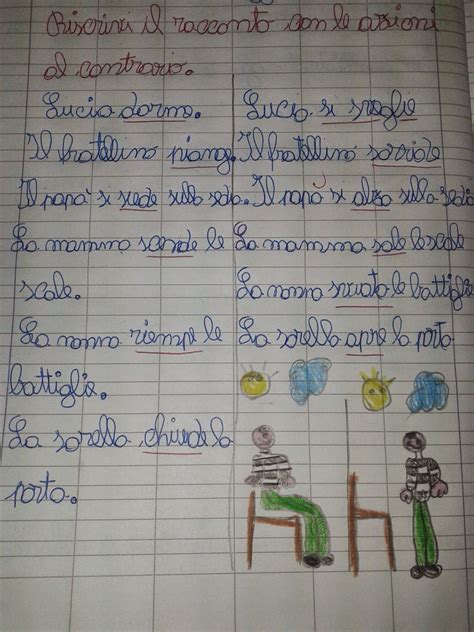 Riscrivi il racconto con le azioni
al contrario.
Lucia dorme.
Il fratellino piang.
Il papà si siede sulla sedia.
La mamma scende le
scale.
La nonna riempe le
bottiglie.
La sorella chiude la
porta.
Lucia si sveglia
Il fratellino sorride
Il papà si alza sulla sedia
La mamma sale le scale
La nonna svuota le bottiglie
La sorella apre la porta